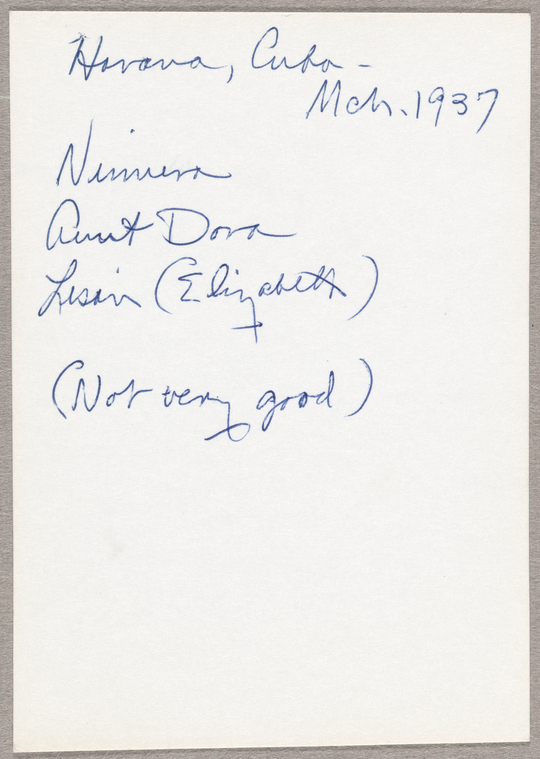 Havana, Cuba -
Mch. 1937
Aunt Dora
(Elizabeth)
(Not very good)